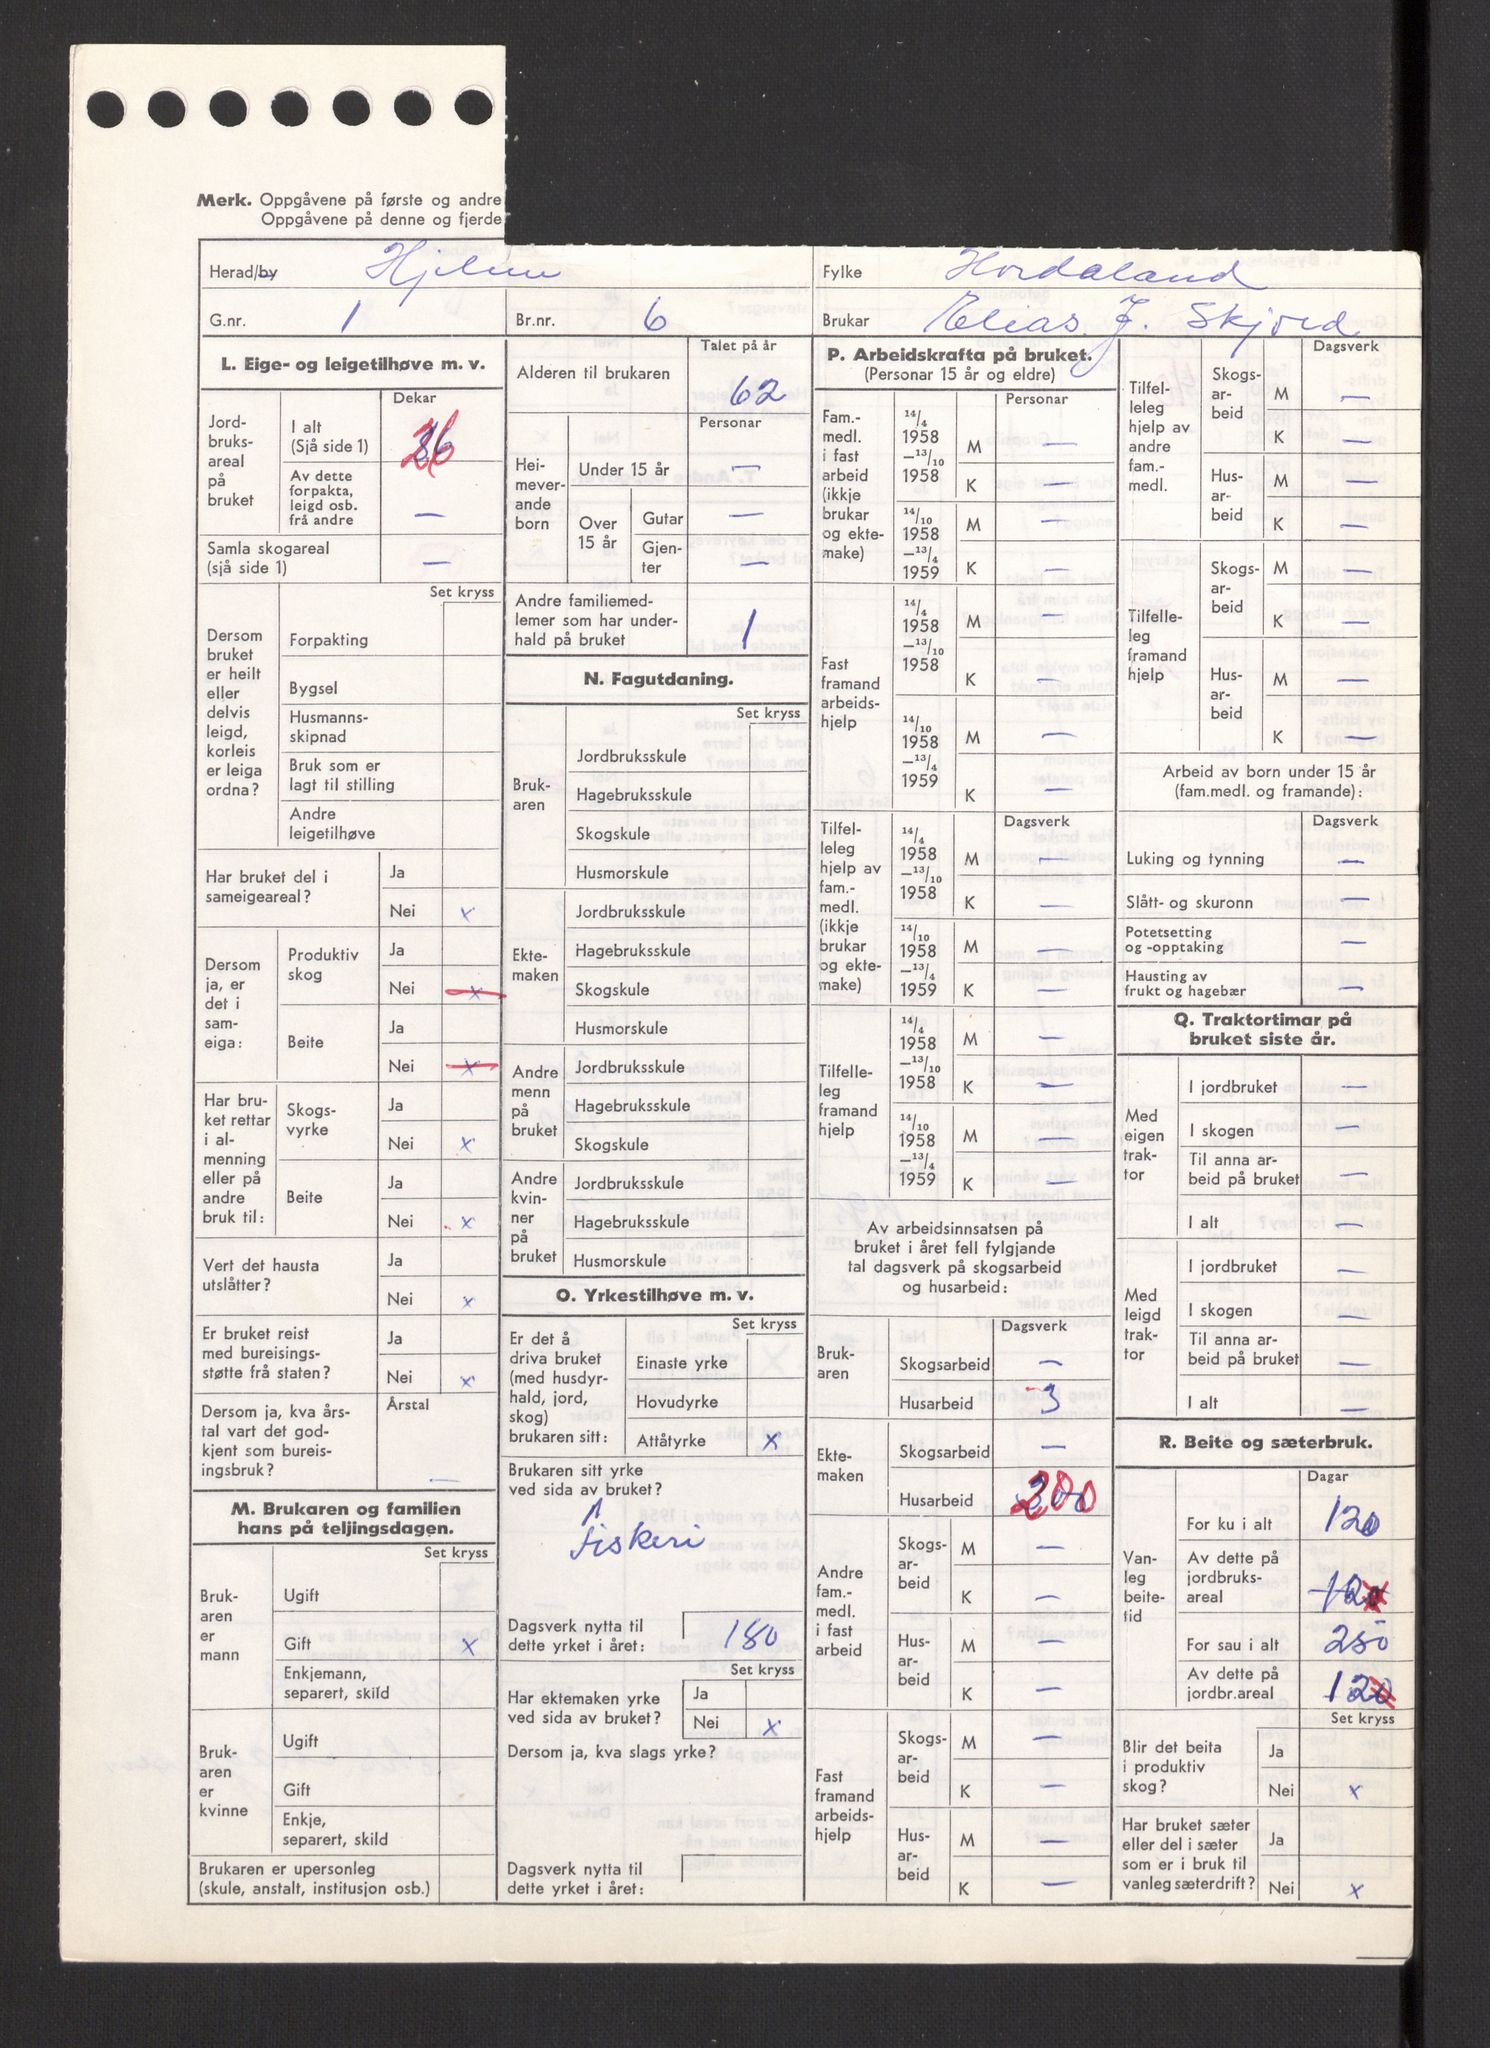 Merk. Oppgåvene på første og andre
Oppgåvene på denne og fjerde
Herad/by Hjelme
Fylke Hordaland
G.nr. 1
Br.nr. 6
Brukar Elias J. Skjord
L. Eige- og leigetilhøve m. v.
Dekar
Jord-
bruks-
areal
på
bruket
I alt
(Sjå side 1)
Av dette
forpakta,
leigd osb.
frå andre —
Samla skogareal
(sjå side 1) —
Set kryss
Dersom
bruket
er heilt
eller
delvis
leigd,
korleis
er leiga
ordna?
Forpakting
Bygsel
Husmanns-
skipnad
Bruk som er
lagt til stilling
Andre
leigetilhøve
Har bruket del i
sameigeareal?
Ja
Nei x
Dersom
ja, er
det i
sam-
eiga:
Produktiv
skog
Ja
Nei x
Beite
Ja
Nei x
Har bru-
ket rettar
i al-
menning
eller på
andre
bruk til:
Skogs-
vyrke
Ja
Nei x
Beite
Ja
Nei x
Vert det hausta
utslåtter?
Ja
Nei x
Er bruket reist
med bureisings-
støtte frå staten?
Ja
Nei x
Dersom ja, kva års-
tal vart det god-
kjent som bureis-
ingsbruk?
Årstal
—
M. Brukaren og familien
hans på teljingsdagen.
Set kryss
Bruk-
aren
er
mann
Ugift
Gift x
Enkjemann,
separert, skild
Bruk-
aren
er
kvinne
Ugift
Gift
Enkje,
separert, skild
Brukaren er upersonleg
(skule, anstalt, institusjon osb.)
Talet på år
Alderen til brukaren 62
Personar
Hei-
mever-
ande
born
Under 15 år —
Over
15 år
Gutar —
Gjen-
ter —
Andre familiemed-
lemer som har under-
hald på bruket 1
N. Fagutdaning.
Set kryss
Bruk-
aren
Jordbruksskule
Hagebruksskule
Skogskule
Husmorskule
Ekte-
maken
Jordbruksskule
Hagebruksskule
Skogskule
Husmorskule
Andre
menn
på
bruket
Jordbruksskule
Hagebruksskule
Skogskule
Andre
kvin-
ner
på
bruket
Jordbruksskule
Hagebruksskule
Husmorskule
O. Yrkestilhøve m. v.
Set kryss
Er det å
driva bruket
(med husdyr-
hald, jord,
skog)
brukaren sitt:
Einaste yrke
Hovudyrke
Attåtyrke x
Brukaren sitt yrke
ved sida av bruket?
Fiskeri
Dagsverk nytta til
dette yrket i året: 180
Set kryss
Har ektemaken yrke
ved sida av bruket?
Ja
Nei x
Dersom ja, kva slags yrke?
Dagsverk nytta til
dette yrket i året:
P. Arbeidskrafta på bruket.
(Personar 15 år og eldre)
Personar
Fam.-
medl.
i fast
arbeid
(ikkje
brukar
og ekte-
make)
14/4
1958
—13/10
1958
M —
K —
14/10
1958
—13/4
1959
M —
K —
Fast
framand
arbeids-
hjelp
14/4
1958
—13/10
1958
M —
K —
14/10
1958
—13/4
1959
M —
K —
Dagsverk
Tilfel-
leleg
hjelp av
fam.-
medl.
(ikkje
brukar
og ekte-
make)
14/4
1958
—13/10
1958
M —
K —
14/10
1958
—13/4
1959
M —
K —
Tilfelle-
leg
framand
hjelp
14/4
1958
—13/10
1958
M —
K —
14/10
1958
—13/4
1959
M —
K —
Av arbeidsinnsatsen på
bruket i året fell fylgjande
tal dagsverk på skogsarbeid
og husarbeid:
Dagsverk
Bruk-
aren
Skogsarbeid —
Husarbeid 3
Ekte-
maken
Skogsarbeid —
Husarbeid 200
Andre
fam.-
medl.
i fast
arbeid
Skogs-
ar-
beid
M —
K —
Hus-
ar-
beid
M —
K —
Fast
framand
arbeids-
hjelp
Skogs-
ar-
beid
M —
K —
Hus-
ar-
beid
M —
K —
Dagsverk
Tilfel-
leleg
hjelp av
andre
fam.-
medl.
Skogs-
ar-
beid
M —
K —
Hus-
ar-
beid
M —
K —
Tilfelle-
leg
framand
hjelp
Skogs-
ar-
beid
M —
K —
Hus-
ar-
beid
M —
K —
Arbeid av born under 15 år
(fam.medl. og framande):
Dagsverk
Luking og tynning —
Slått- og skuronn —
Potetsetting
og -opptaking —
Hausting av
frukt og hagebær —
Q. Traktortimar på
bruket siste år.
Med
eigen
trak-
tor
I jordbruket —
I skogen —
Til anna ar-
beid på bruket —
I alt —
Med
leigd
trak-
tor
I jordbruket —
I skogen —
Til anna ar-
beid på bruket —
I alt —
R. Beite og sæterbruk.
Dagar
Van-
leg
beite-
tid
For ku i alt 120
Av dette på
jordbruks-
areal 120
For sau i alt 250
Av dette på
jordbr.areal 120
Set kryss
Blir det beita
i produktiv
skog?
Ja
Nei x
Har bruket sæter
eller del i sæter
som er i bruk til
vanleg sæterdrift?
Ja
Nei x